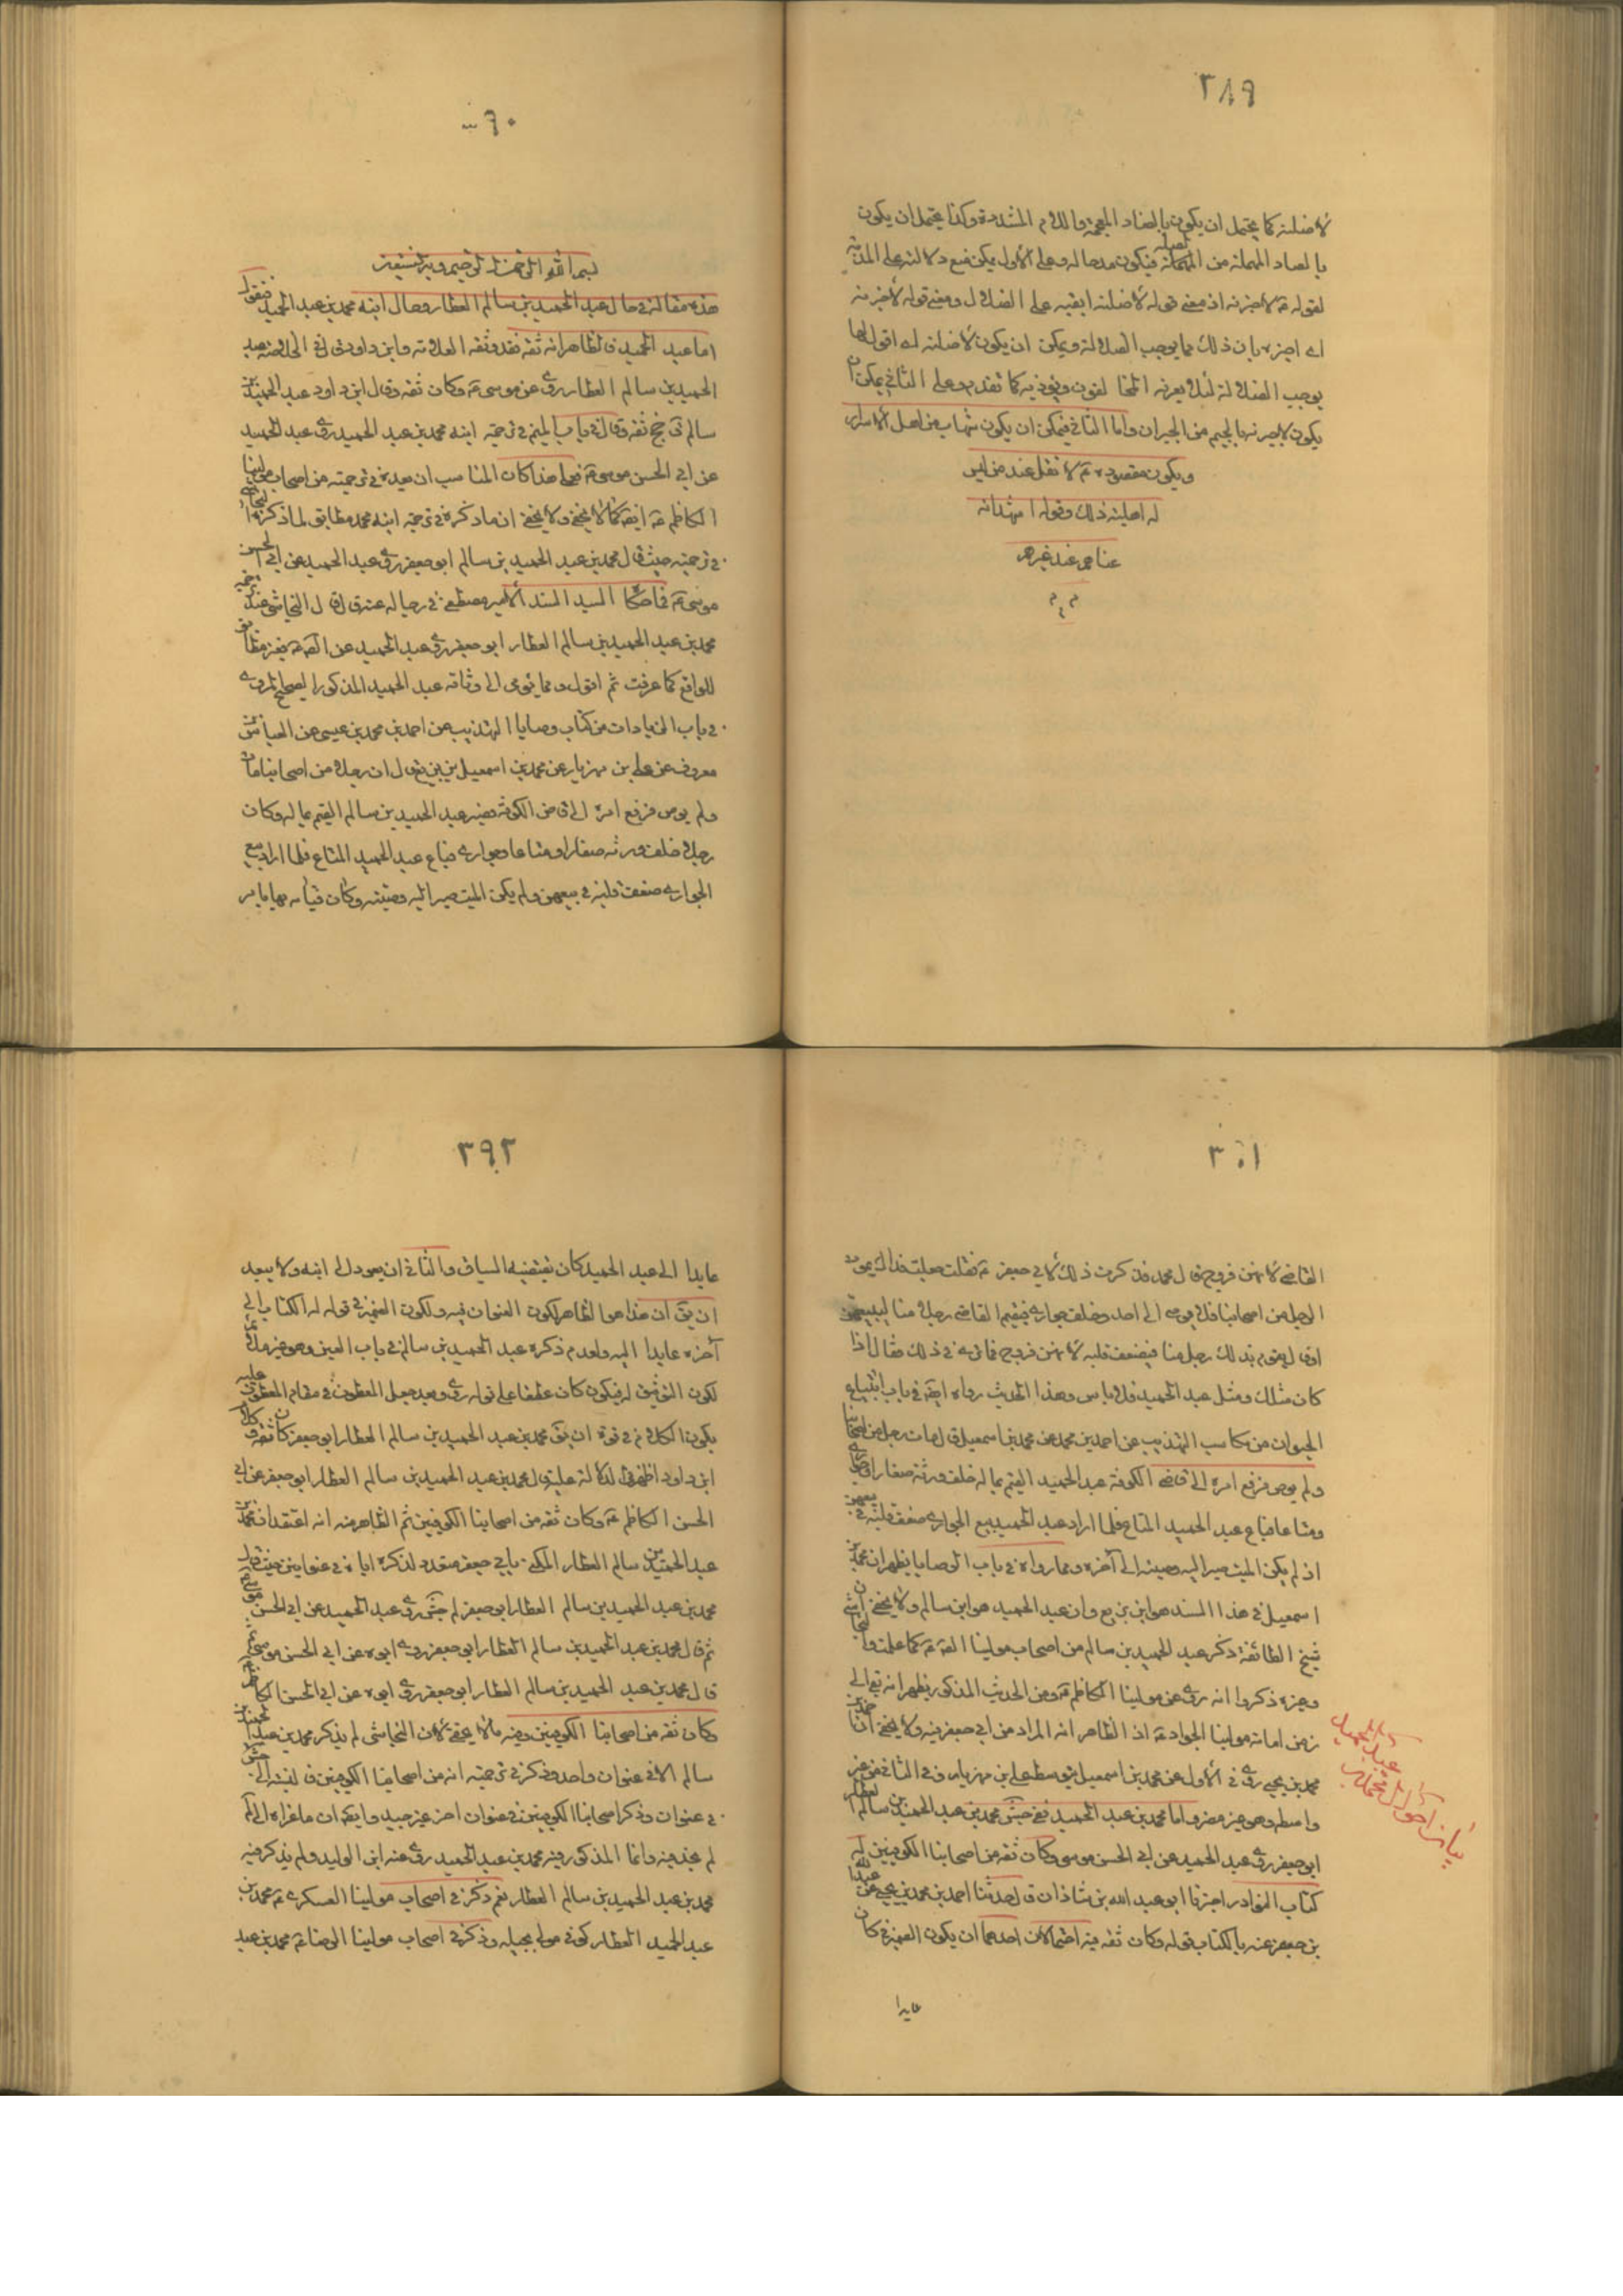 ٣٨٩
لاضلنه كما يحتمل ان يكون بالضاد المعجمة واللام المشددة وكذا يحتمل ان يكون
بالصاد المهملة من فيكون مدحا له وعلى الأول يمكن منع دلالته على المذمة
لقوله ع لاخبرنه اذ معنى قوله لاضلنه ابقيه على الضلال ومعنى قوله لاخبرنه
اي اخبره بان ذلك مما يوجب الضلالة ويمكن ان يكون لاضلنه اي اقول لها
يوجب الضلالة لئلا يعرفه كما تقدم وعلى الثاني يمكن ان
يكون بالجيم من الجيران واما الثاني فيمكن ان يكون شهاب من اهل الاسرار
ويكون مقصوده ع لا تقل عند من ليس
له اهلية ذلك وقوله
عنا عند غيره
م م
٣٩٠
بسم الله الرحمن الرحيم وبه نستعين
هذه مقالة في حال عبد الحميد بن سالم العطار وحال ابنه محمد بن عبد الحميد فنقول
اما عبد الحميد فالظاهر انه ثقة فقد وثقه العلامة وابن داود قال في الخلاصة عبد
الحميد بن سالم العطار روى عن موسى ع وكان ثقة وقال ابن داود عبد الحميد بن
سالم ق جخ ثقة وقال في باب الميم في ترجمة ابنه محمد بن عبد الحميد روى عبد الحميد
عن ابي الحسن موسى ع فعلى هذا كان المناسب ان يعده في ترجمته من اصحاب مولينا
الكاظم ع ايضا كما لا يخفى ولا يخفى ان ما ذكره في ترجمة ابنه محمد مطابق لما ذكره النجاشي
في ترجمته حيث قال محمد بن عبد الحميد بن سالم ابو جعفر روى عبد الحميد عن ابي الحسن
موسى ع السيد السند الامير مصطفى في رجاله قال النجاشي عند ترجمة
محمد بن عبد الحميد بن سالم العطار ابو جعفر روى عبد الحميد عن غير مطابق
للواقع كما عرفت ثم اقول ومما يومى الى وثاقة عبد الحميد المذكور الصحيح المروي
في باب الزيادات من كتاب وصايا التهذيب عن احمد بن محمد بن عيسى عن العباس بن
معروف عن علي بن مهزيار عن محمد بن اسمعيل بن بزيع قال ان رجلا من اصحابنا مات
ولم يوص فرفع امره الى قاضي الكوفة فصير عبد الحميد بن سالم القيم بماله وكان
رجلا خلف ورثة صغارا ومتاعا وجواري فباع عبد الحميد المتاع فلما اراد بيع
الجواري ضعف قلبه في بيعهن ولم يكن الميت صير اليه وصيته وكان قيامه بها بامر
٣٩١
القاضي لانهن فروج قال محمد فذكرت ذلك لابي جعفر ع فقلت جعلت فداك يموت
الرجل من اصحابنا فلا يوصى الى احد وخلف جواري فيقيم القاضي رجلا منا ليبيعهن
او قال يقوم بذلك رجل منا فيضعف قلبه لانهن فروج فما ترى في ذلك فقال اذا
كان مثلك ومثل عبد الحميد فلا باس وهذا الحديث رواه ايضا في باب ابتياع
الحيوان من مكاسب التهذيب عن احمد بن محمد عن محمد بن اسمعيل قال مات رجل من اصحابنا
ولم يوص فرفع امره الى قاضي الكوفة عبد الحميد القيم بماله خلف ورثة صغارا
ومتاعا فباع عبد الحميد المتاع فلما اراد عبد الحميد بيع الجواري ضعف قلبه في بيعهن
اذ لم يكن الميت صير اليه وصيته الى آخره ومما رواه في باب الوصايا يظهر ان محمد بن
اسمعيل في هذا السند هو ابن بزيع وان عبد الحميد هو ابن سالم ولا يخفى ان
شيخ الطائفة ذكر عبد الحميد بن سالم من اصحاب مولينا كما علمت والنجاشي
وغيره ذكروا انه روى عن مولينا الكاظم ع ومن الحديث المذكور يظهر انه بقي الى
زمن امامة مولينا الجواد ع اذ الظاهر انه المراد من ابي جعفر فيه ولا يخفى ان احمد بن
محمد بن يحيى روى في الأول عن محمد بن اسمعيل بتوسط علي بن مهزيار وفي الثاني من غير
واسطة وهو غير مضر واما محمد بن عبد الحميد ففي جش محمد بن عبد الحميد بن سالم العطار
ابو جعفر روى عبد الحميد عن ابي الحسن موسى وكان ثقة من اصحابنا الكوفيين له
كتاب النوادر اخبرنا ابو عبد الله بن شاذان قال حدثنا احمد بن محمد بن يحيى عن عبد الله
بن جعفر عنه بالكتاب قوله وكان ثقة فيه احتمالان احدهما ان يكون الضمير في كان
عايدا
بيان احوال محمد بن عبد الحميد
٣٩٢
عايدا الى عبد الحميد كان يقتضيه السياق والثاني ان يعود الى ابنه ولا يبعد
ان يق ان هذا هو الظاهر لكون العنوان فيه ولكون الضمير في قوله له الكتاب الى
آخره عايدا اليه ولعدم ذكره عبد الحميد بن سالم في باب العين وهو غير ملائم
لكون التوثيق له فيكون كان عطفا على قوله روى وبعد جعل المعطوف في مقام المعطوف عليه
يكون الكلام في قوة ان يق محمد بن عبد الحميد بن سالم العطار ابو جعفر كان ثقة وكلام
ابن داود اظهر في الدلالة عليه قال محمد بن عبد الحميد بن سالم العطار ابو جعفر عن ابي
الحسن الكاظم ع وكان ثقة من اصحابنا الكوفيين ثم الظاهر منه انه اعتقد ان محمد بن
عبد الحميد بن سالم العطار المكنى بابي جعفر متعدد لذكره اياه في عنوانين حيث قال
محمد بن عبد الحميد بن سالم العطار ابو جعفر لم جش روى عبد الحميد عن ابي الحسن موسى ع
ثم قال محمد بن عبد الحميد بن سالم العطار ابو جعفر روى ابوه عن ابي الحسن موسى ع
قال محمد بن عبد الحميد بن سالم العطار ابو جعفر روى ابوه عن ابي الحسن الكاظم
وكان ثقة من اصحابنا الكوفيين وفيه ما لا يخفى لان النجاشي لم يذكر محمد بن عبد الحميد بن
سالم الا في عنوان واحد وذكر في ترجمته انه من اصحابنا الكوفيين
في عنوان وذكر اصحابنا الكوفيين في عنوان آخر غير جيد وايضا ان ما عزاه الى لم
لم نجد فيه وانما المذكور فيه محمد بن عبد الحميد روى عنه ابن الوليد ولم يذكر فيه
محمد بن عبد الحميد بن سالم العطار نعم ذكر في اصحاب مولينا العسكري ع محمد بن
عبد الحميد العطار كوفي مولى بجيلة وذكر في اصحاب مولينا الرضا ع محمد بن عبد